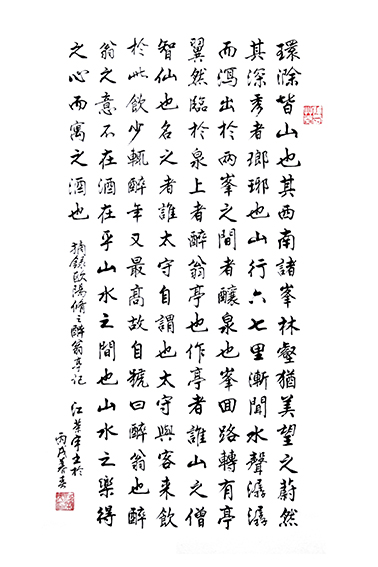 環滁皆山也其西南諸峯林壑猶美望之蔚然
其深秀者瑯琊也山行六七里漸聞水聲潺潺
而瀉出於兩峯之間者釀泉也峯回路轉有亭
翼然臨於泉上者醉翁亭也作亭者誰山之僧
智仙也名之者誰太守自謂也太守與客來飲
於此飲少輒醉年又最高故自號曰醉翁也醉
翁之意不在酒在乎山水之間也山水之樂得
之心而寓之酒也
摘錄歐陽脩之醉翁亭記
丙戌春